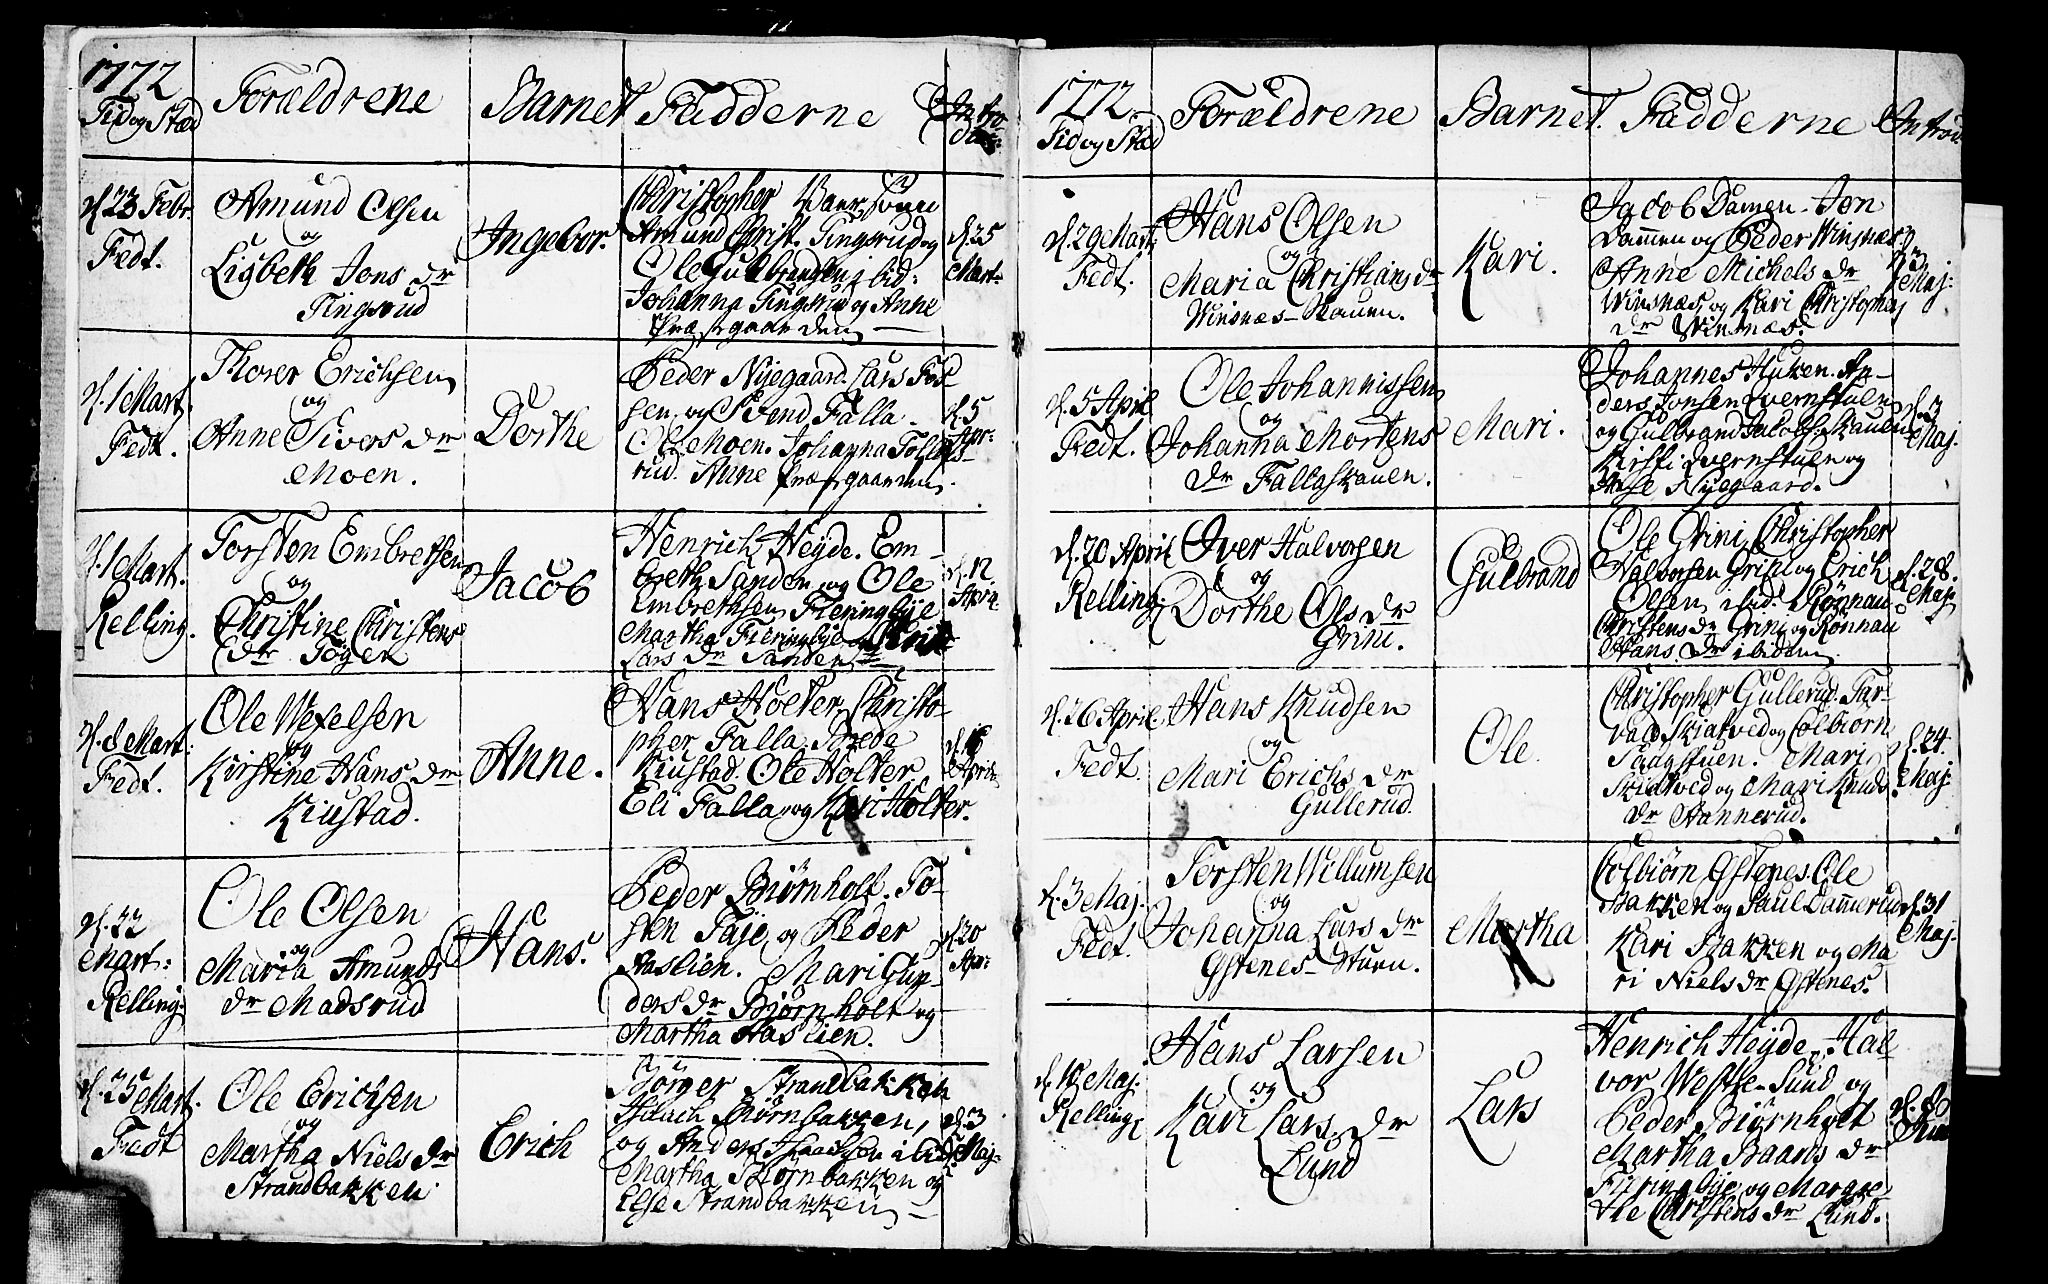 1772
Tid og Stæd
Forældrene
Barnet
Fadderne
Intro-
duc:
d. 23 Febr.
Fedt.
Amund Olsen
og
Lisbeth Jons dr
Tingsrud
Ingebor.
Christopher
Amund Christ. Tingsrud og
Ole Gulbrandsen ibid:
Johanna Tingsrud og Anne
Præstgaarden
d. 25
Mart:
d. 1 Mart.
Fedt.
Thorer Erichsen
og
Anne Sivers dr
Moen.
Dorthe
Peder Nijegaard. Lars Fos-
sen og Svend Falla.
Ole Moen. Johanna Tollers-
rud. Anne Præstgaarden.
d. 5
Apr:
d. 1 Mart.
Relling.
Torsten Embretsen
og
Christine Christens
dr Tøger
Jacob
Henrich Heyde. Em-
breth Sanden og Ole
Embrethsen Fieringbye
Martha Fieringbye og
Lars dr Sanden
d. 12
April.
d. 8 Mart:
Fedt.
Ole Wexelsen
og
Kirstine Hans dr
Kiustad.
Anne.
Hans Holter, Christo-
pher Falla Brede
Kiustad. Ole Holter
Eli Falla og Kari Holter.
d. 16
April
d. 22
Mart:
Relling.
Ole Olsen
og
Maria Amunds
dr Madsrud
Hans.
Peder Biørnholt. To-
sten Taje og Peder
Haslien. Mari Gun-
ders dr Biørnholt og
Martha Haslien.
d. 20
Apr:
d. 25 Mart.
Fedt
Ole Erichsen
og
Martha Niels dr
Strandbakken
Erich
Børger Strandbakken
Isaach Biørnbakken,
og Anders Isaachsen ibid.
Martha Biørnbakken og
Else Strandbakken
d. 3
Maj.
1772
Tid og Stæd
Forældrene
Barnet.
Fadderne
Introd.
d. 29 Mart.
Fedt.
Hans Olsen
og
Maria Christians dr
Winsnæs-Skauen.
Kari.
Jacob Damen. Jon
Dammen og Peder Winsnæs.
Anne Michels dr
Winsnæs, og Kari Christophers
dr Winsnæs.
d. 3
Maj.
d. 5 April
Fedt.
Ole Johannissen
og
Johanna Mortens
dr Fallaskauen.
Mari.
Johannes Huken. An-
ders Jonsen Qvernstuen
og Gulbrand Jacobs. Skauen
Kirsti Qvernstuen og
Else Nyegaard.
d. 3
Maj.
d. 20 April
Relling.
Iver Halvorsen
og
Dorthe Ols dr
Grini.
Gulbrand
Ole Grini, Christopher
Halvorsen Grini og Erich
Olsen ibid. Rønnau
Christens dr Grini og Rønnau
Hans dr ibidem.
d. 28.
Maj
d. 26 April.
Fedt.
Hans Knudsen
og
Mari Erichs dr
Gullerud.
Ole
Christopher Gullerud. Tar-
vald Skiatved og Colbiørn
Saugstuen. Mari
Skiatved og Mari Knuds
dr Hannerud.
d. 24.
Maj.
d. 3 Maj.
Fedt.
Torsten Willumsen
og
Johanna Lars dr
Gstenes-Stuen.
Martha
Colbiørn Gstenes. Ole
Bakken og Paul Dannerud
Kari Bakken og Ma
ri Niels dr Gstenes.
d. 31
Maj.
d. 10 Maj.
Relling.
Hans Larsen
og
Kari Lars dr
Lund
Lars
Henrich Heyde. Hal-
vor Westre-Sund og
Peder Biørnholt
Martha Baards dr
Fieringbye og Margre-
the Christens dr Lund.